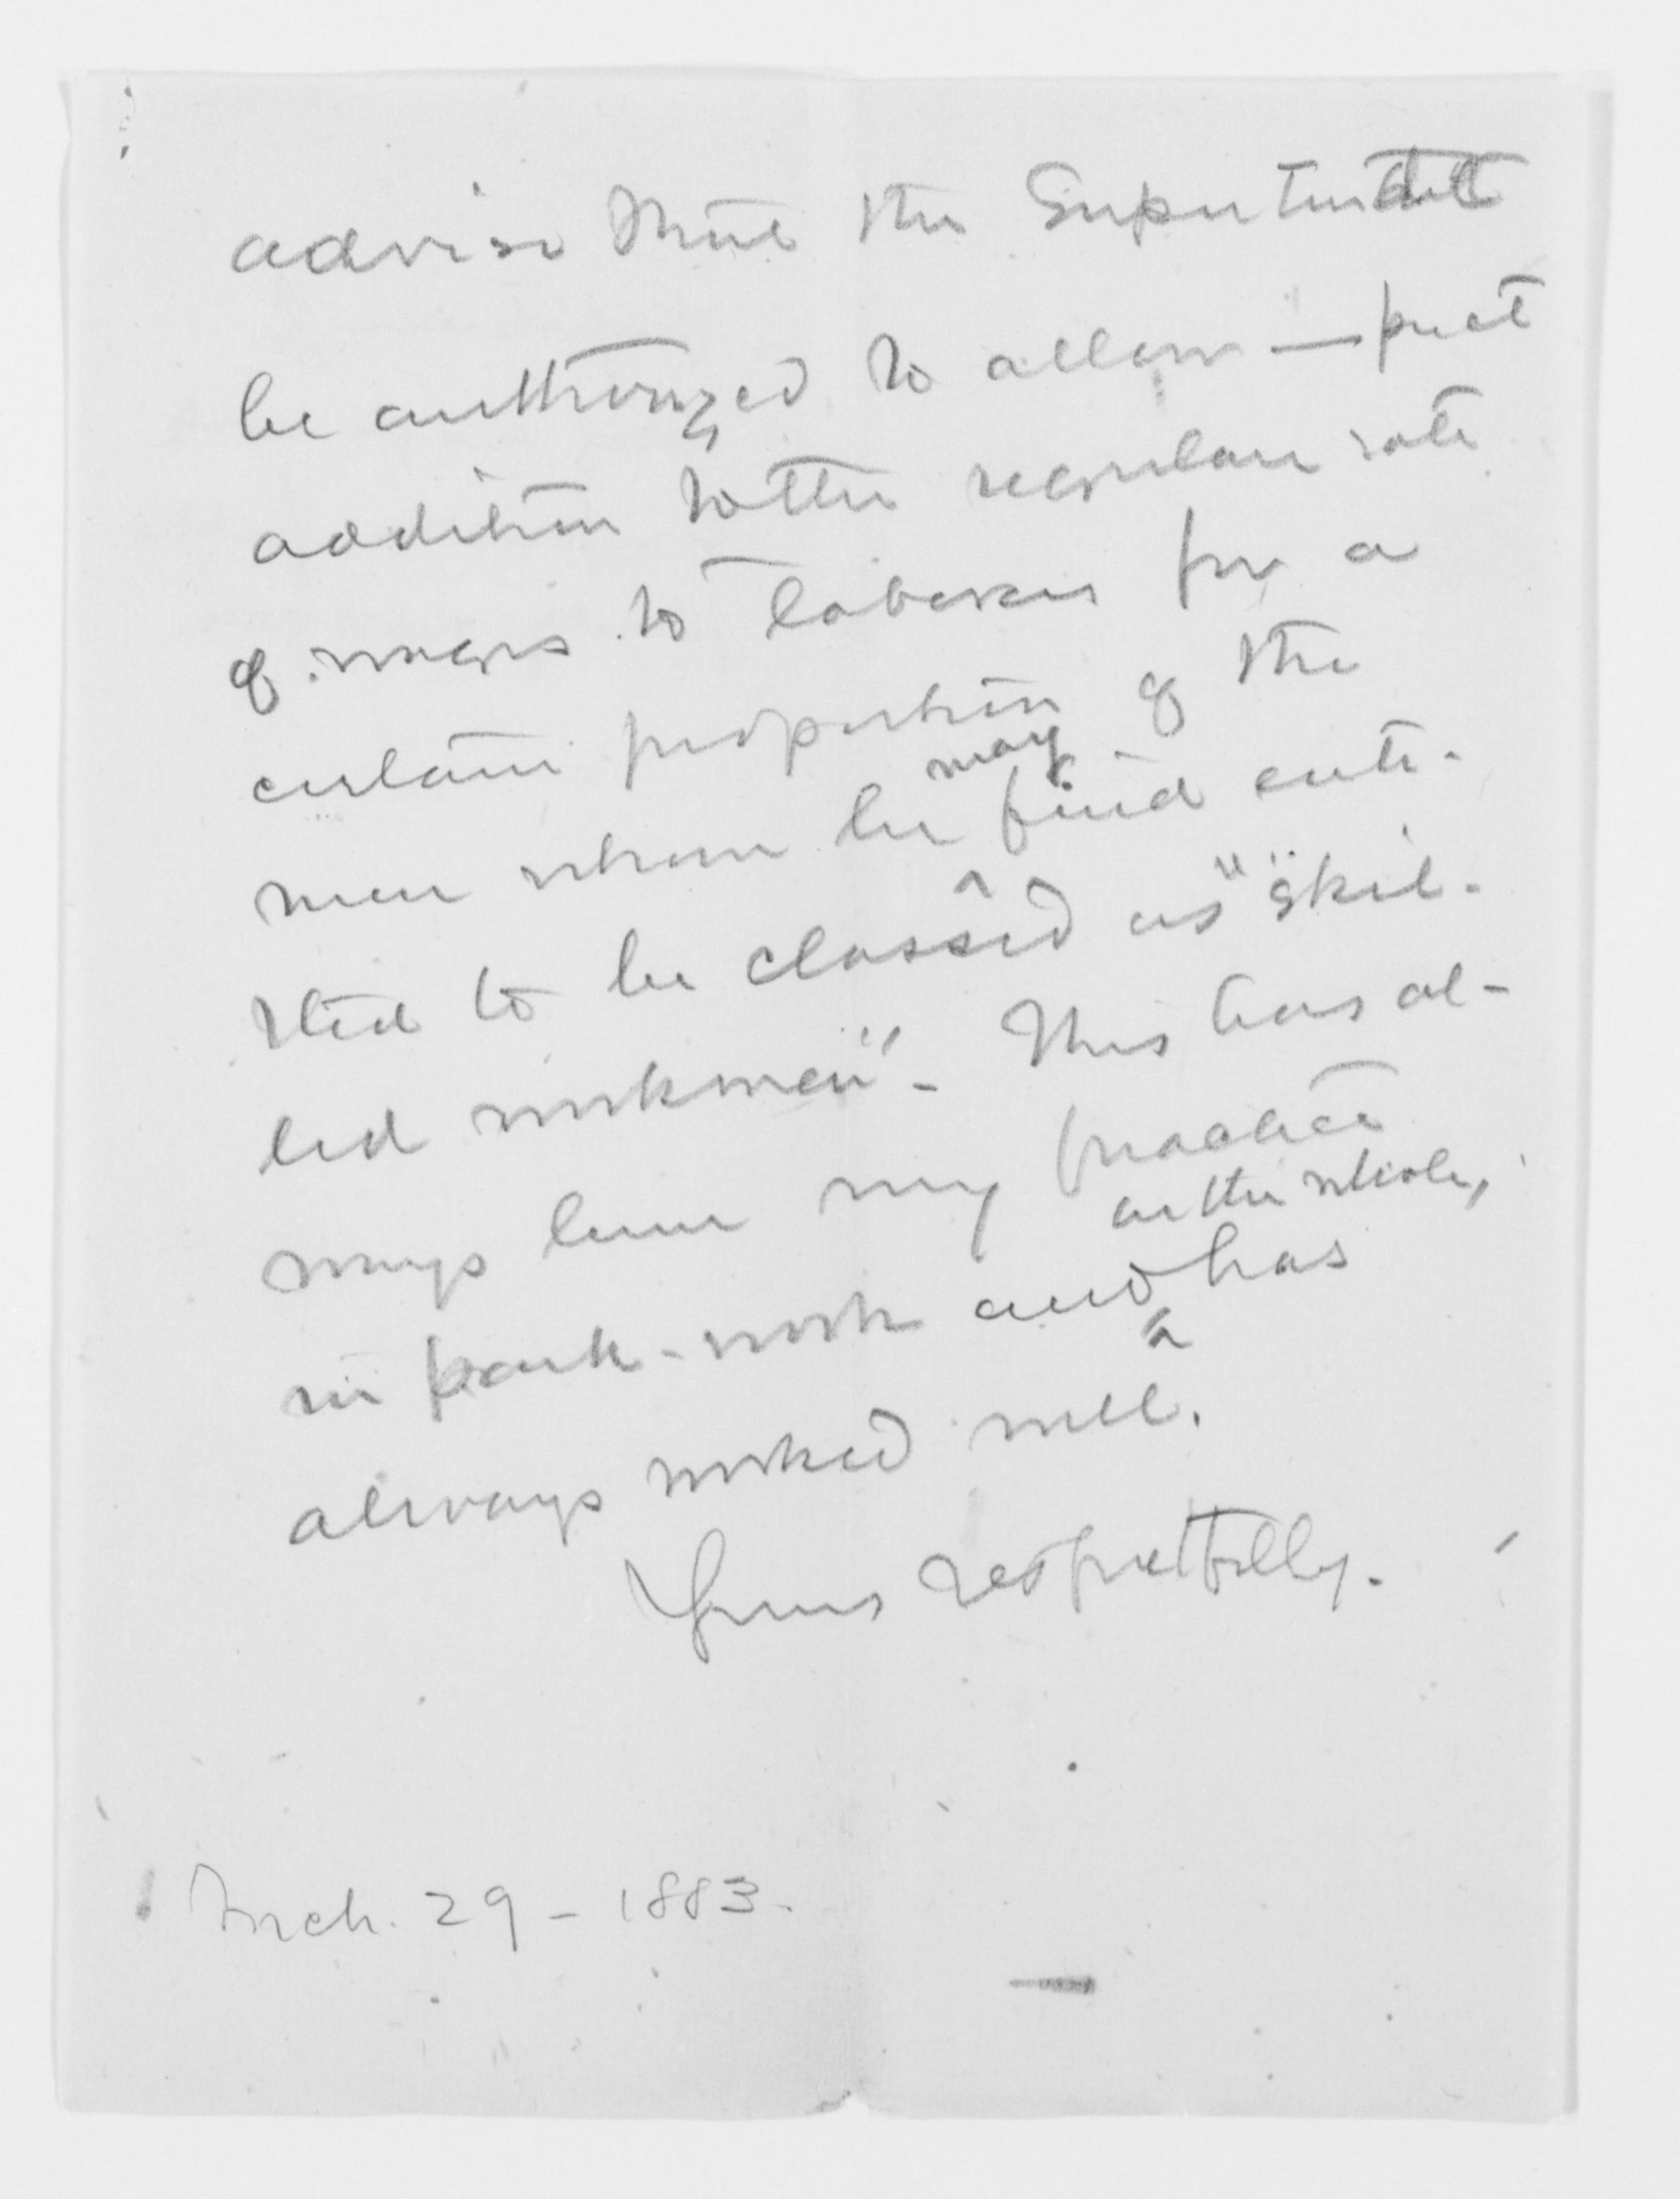 advise that the Superintendent
be authorized to allow — pr ct
addition to the regular rate
of wages to laborers for a
certain proportion of the
men whom he may find enti-
tled to be classed as "skil-
led workmen". This has al-
ways been my practice
in park-work and on the whole, has
always worked well.
Yours respectfully.
Mch. 29 - 1883.